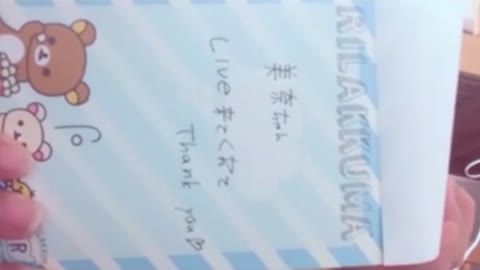 RILAKKUMA
美奈ちゃん
Live 来てくれて
Thank you♡